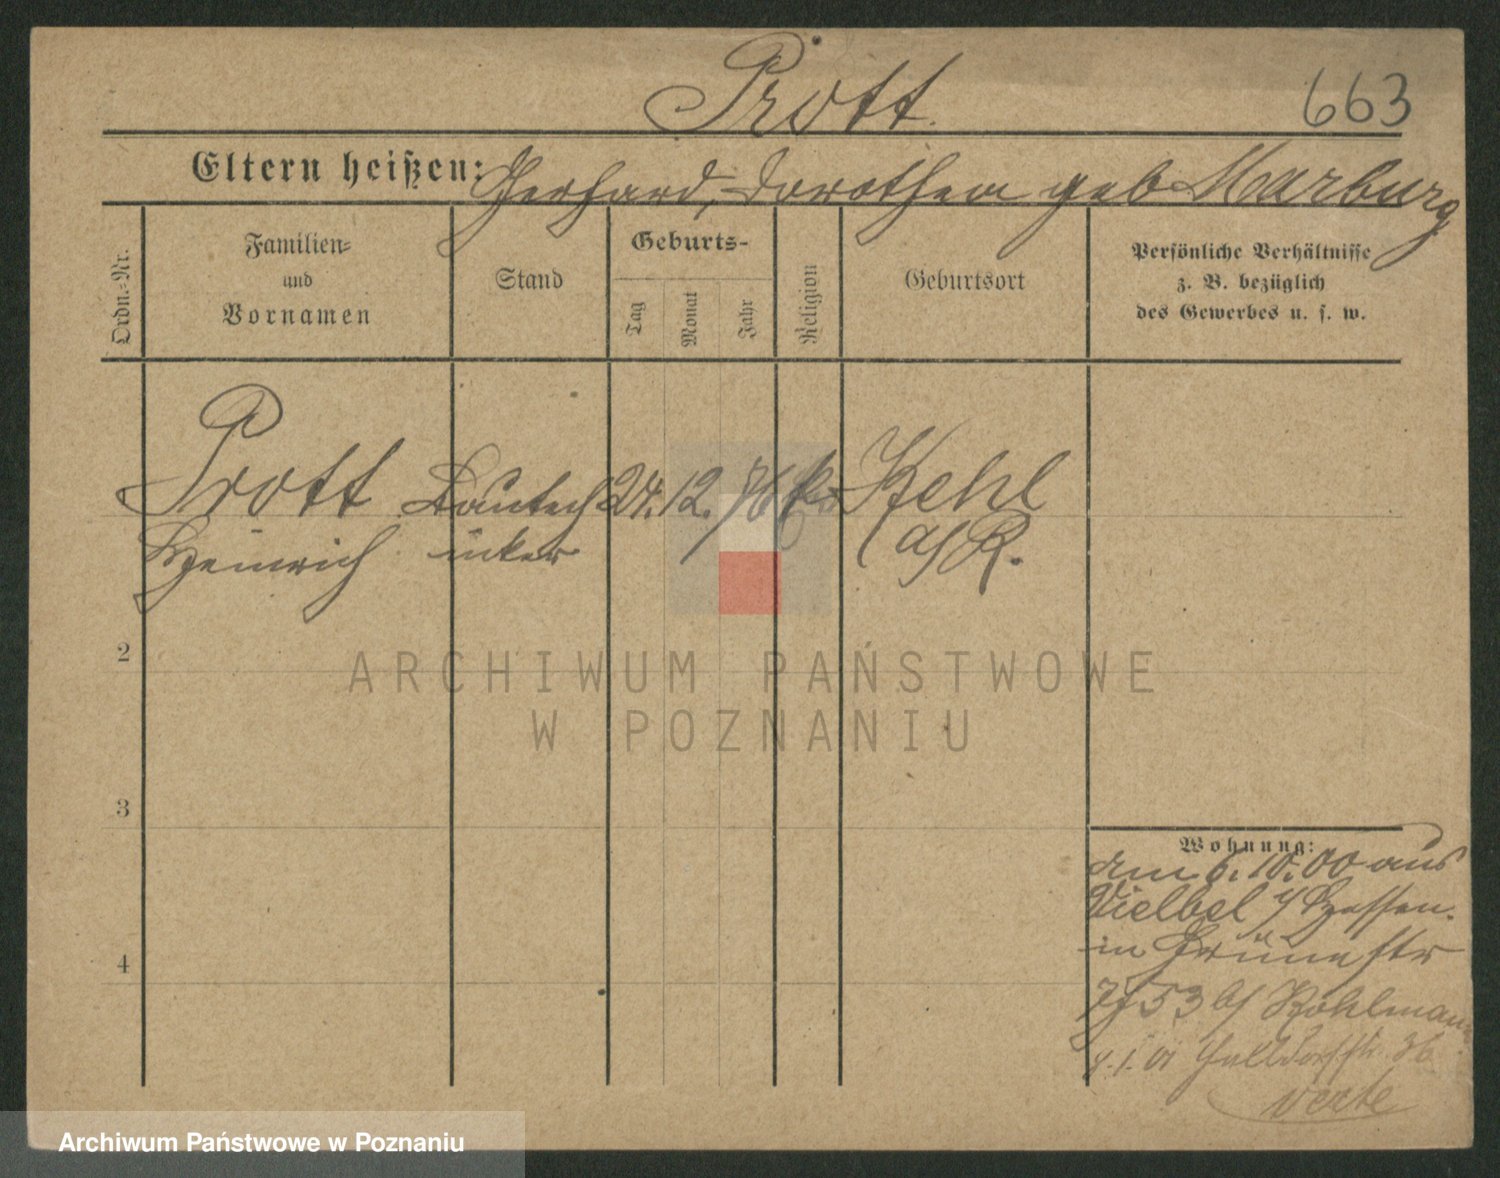 Prott.
663
Eltern heißen: Gerhard, Dorothea geb Marburg
Ordn.-Nr.
Familien-
und
Vornamen
Stand
Geburts-
Tag
Monat
Jahr
Religion
Geburtsort
Persönliche Verhältnisse
z. B. bezüglich
des Gewerbes u. s. w.
Prott Bautech 24. 12. 76 Kehl
Heinrich niker a/R.
2
3
4
Wohnung:
am 6.10.00 aus
Vielbel i/ Hessen.
in Grüne str
53 b/ Kohlmann
4.1.01 36
verte
ARCHIWUM PAŃSTWOWE
W POZNANIU
Archiwum Państwowe w Poznaniu